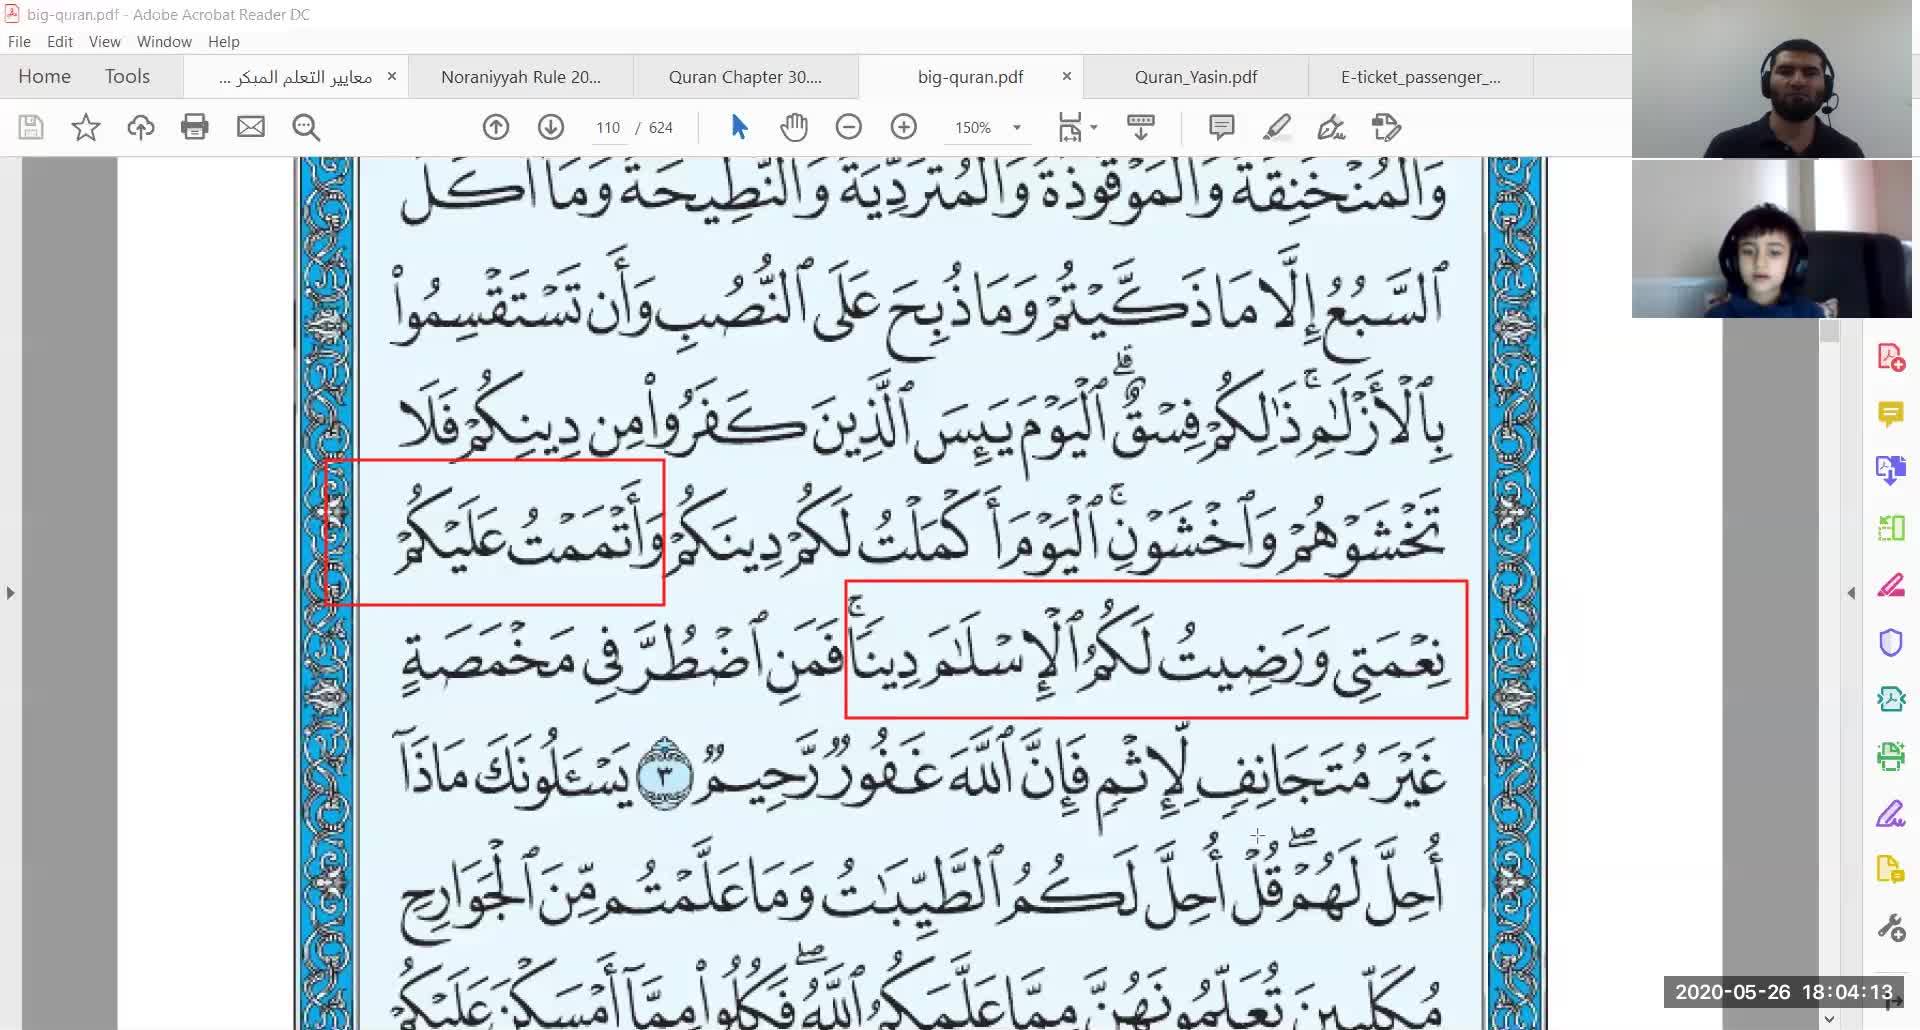 big-quran.pdf - Adobe Acrobat Reader DC
File Edit View Window Help
Home Tools معايير التعلم المبكر ... × Noraniyyah Rule 20... Quran Chapter 30.... big-quran.pdf × Quran_Yasin.pdf E-ticket_passenger_...
110 / 624 150%
وَٱلْمُنْخَنِقَةُ وَٱلْمَوْقُوذَةُ وَٱلْمُتَرَدِّيَةُ وَٱلنَّطِيحَةُ وَمَآ أَكَلَ
ٱلسَّبُعُ إِلَّا مَا ذَكَّيْتُمْ وَمَا ذُبِحَ عَلَى ٱلنُّصُبِ وَأَن تَسْتَقْسِمُوا۟
بِٱلْأَزْلَٰمِ ۚ ذَٰلِكُمْ فِسْقٌ ۗ ٱلْيَوْمَ يَئِسَ ٱلَّذِينَ كَفَرُوا۟ مِن دِينِكُمْ فَلَا
تَخْشَوْهُمْ وَٱخْشَوْنِ ۚ ٱلْيَوْمَ أَكْمَلْتُ لَكُمْ دِينَكُمْ وَأَتْمَمْتُ عَلَيْكُمْ
نِعْمَتِى وَرَضِيتُ لَكُمُ ٱلْإِسْلَٰمَ دِينًا ۚ فَمَنِ ٱضْطُرَّ فِى مَخْمَصَةٍ
غَيْرَ مُتَجَانِفٍ لِّإِثْمٍ فَإِنَّ ٱللَّهَ غَفُورٌ رَّحِيمٌ ٣ يَسْـَٔلُونَكَ مَاذَآ
أُحِلَّ لَهُمْ ۖ قُلْ أُحِلَّ لَكُمُ ٱلطَّيِّبَٰتُ وَمَا عَلَّمْتُم مِّنَ ٱلْجَوَارِحِ
مُكَلِّبِينَ تُعَلِّمُونَهُنَّ مِمَّا عَلَّمَكُمُ ٱللَّهُ ۖ فَكُلُوا۟ مِمَّآ أَمْسَكْنَ عَلَيْكُمْ
2020-05-26 18:04:13